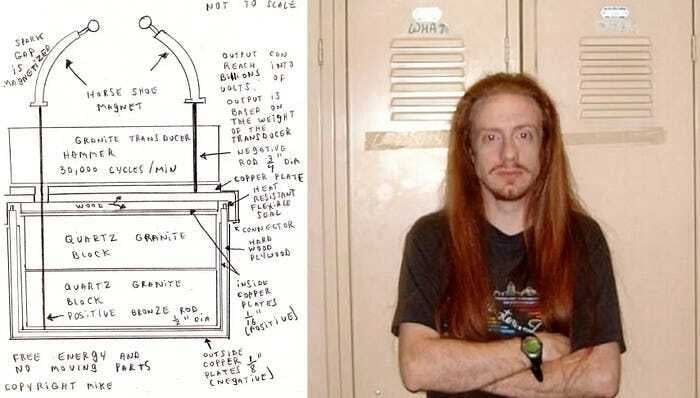 NOT TO SCALE
SPARK
GAP
IS
MAGNETIZED
HORSE SHOE
MAGNET
OUTPUT CAN
REACH INTO
BILLIONS OF
VOLTS.
OUTPUT IS
BASED ON
THE WEIGHT
OF THE
TRANSDUCER
GRANITE TRANSDUCER
HAMMER
30,000 CYCLES/MIN
NEGATIVE
ROD 3/4" DIA
COPPER PLATE
HEAT
RESISTANT
FLEXIBLE
SEAL
WOOD
CONNECTOR
HARD
WOOD
PLYWOOD
QUARTZ GRANITE
BLOCK
QUARTZ GRANITE
BLOCK
POSITIVE BRONZE ROD
1/2" DIA
INSIDE
COPPER
PLATES
1/8"
(POSITIVE)
OUTSIDE
COPPER 1/8"
PLATES
(NEGATIVE)
FREE ENERGY AND
NO MOVING PARTS
COPYRIGHT MIKE
WHAT